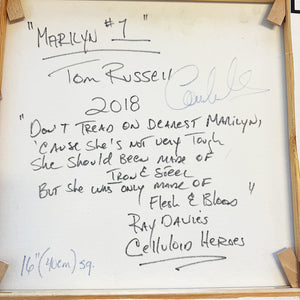 "MARILYN #1"
TOM RUSSELL
2018
"DON'T TREAD ON DEAREST MARILYN,
'CAUSE SHE'S NOT VERY TOUGH
SHE SHOULD BEEN MADE OF
IRON & STEEL
BUT SHE WAS ONLY MADE OF
FLESH & BLOOD"
RAY DAVIES
CELLULOID HEROES
16" (40cm) sq.